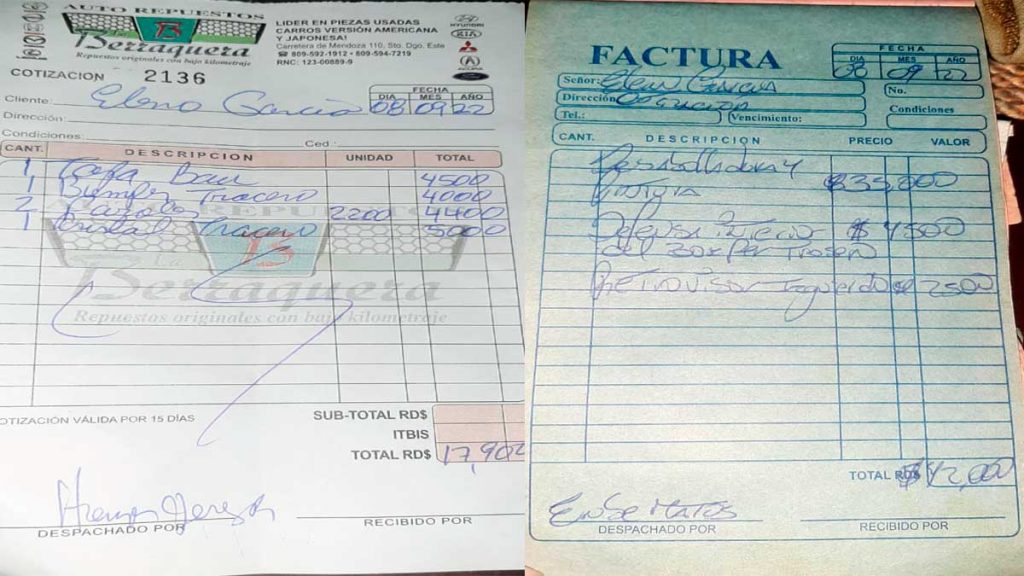 AUTO REPUESTOS
La
Berraquera
Repuestos originales con bajo kilometraje
LIDER EN PIEZAS USADAS
CARROS VERSIÓN AMERICANA
Y JAPONESA!
Carretera de Mendoza 110, Sto. Dgo. Este
☎ 809-592-1912 • 809-594-7219
RNC: 123-00889-9
HYUNDAI
KIA
ACURA
Ford
COTIZACION 2136
FECHA
DIA MES AÑO
08 09 22
Cliente: Elena Garcia
Dirección:
Condiciones: Ced.:
CANT. DESCRIPCION UNIDAD TOTAL
1 Tapa Baul 4500
1 Bumper Tracero 4000
2 Faroles 2200 4400
1 Cristal Tracero 5000
AUTO REPUESTOS
La
Berraquera
Repuestos originales con bajo kilometraje
COTIZACIÓN VÁLIDA POR 15 DÍAS
SUB-TOTAL RD$
ITBIS
TOTAL RD$ 17,900
DESPACHADO POR
RECIBIDO POR
FACTURA
FECHA
DIA MES AÑO
08 09 22
Señor: Elena Garcia
Dirección:
Tel.: Vencimiento:
No.
Condiciones
CANT. DESCRIPCION PRECIO VALOR
Desabolladura y
Pintura $35,000
Defensa Interior $ 4500
del Bomper Trasero
Retrovisor Izquierdo $ 2500
TOTAL RD$ $42,000
Ense Matos
DESPACHADO POR
RECIBIDO POR